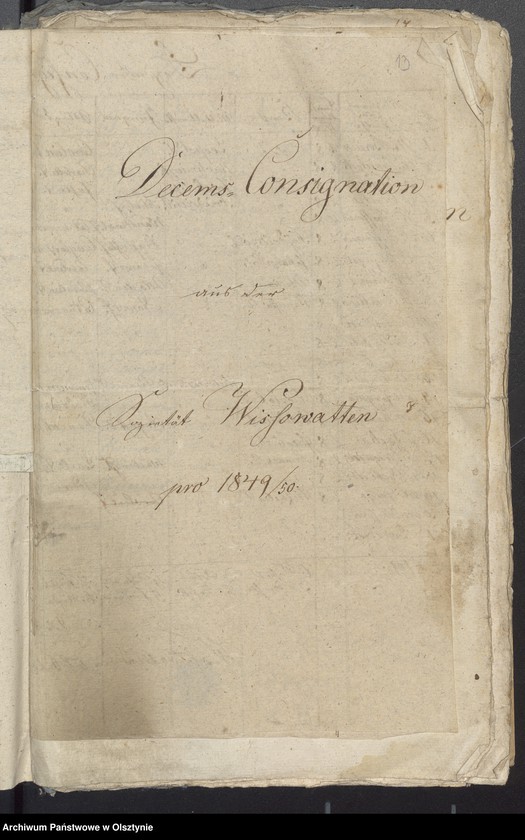 14
13
Decems, Consignation
n
aus der
Sozietät Wissowatten
pro 1849/50.
Archiwum Państwowe w Olsztynie